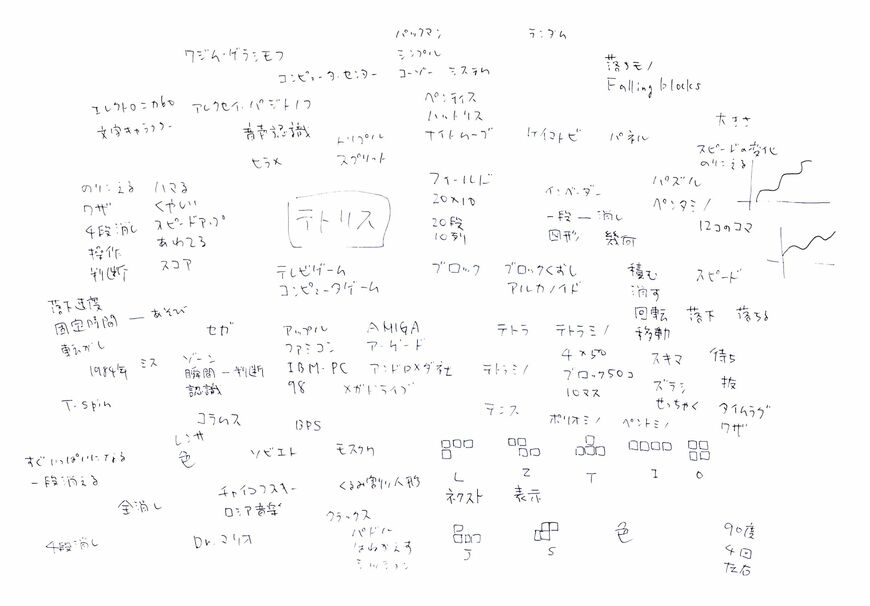 パックマン
ランダム
ワジム・ゲラシモフ
シンプル
コンピュータ・センター
ユーゾー システム
落ちモノ
Falling blocks
エレクトロニカ60
アレクセイ・パジトノフ
ペンティス
ハットリス
文字キャラクター
音声認識
トリプル
ナイトムーブ
ケイマトビ
パネル
大きさ
ヒラメ
スプリット
スピードの変化
のりこえる
フィールド
20×10
パズル
のりこえる
ハマる
インベーダー
ペンタミノ
ワザ
くやしい
テトリス
20段
一段―消し
12コのコマ
4段消し
スピードアップ
10列
図形
幾何
操作
あわてる
判断
スコア
テレビゲーム
ブロック
ブロックくずし
積む
スピード
コンピュータゲーム
アルカノイド
消す
落下速度
回転
落下
落ちる
固定時間―あそび
セガ
アップル
AMIGA
テトラ
テトラミノ
移動
転がし
ファミコン
アーケード
4×50
スキマ
待ち
1984年
ミス
ゾーン
瞬間―判断
IBM・PC
アンドロメダ社
テトラミノ
ブロック50コ
認識
98
メガドライブ
10マス
ズラシ
抜
せっちゃく
タイムラグ
T-Spin
テニス
ワザ
コラムス
BPS
ポリオミノ
ペントミノ
レンサ
色
ソビエト
モスクワ
すぐいっぱいになる
一段消える
L
Z
T
I
O
チャイコフスキー
くるみ割り人形
ネクスト
表示
全消し
ロシア音楽
クラックス
4段消し
Dr.マリオ
パドル
はねかえす
J
S
色
90度
4回
左右